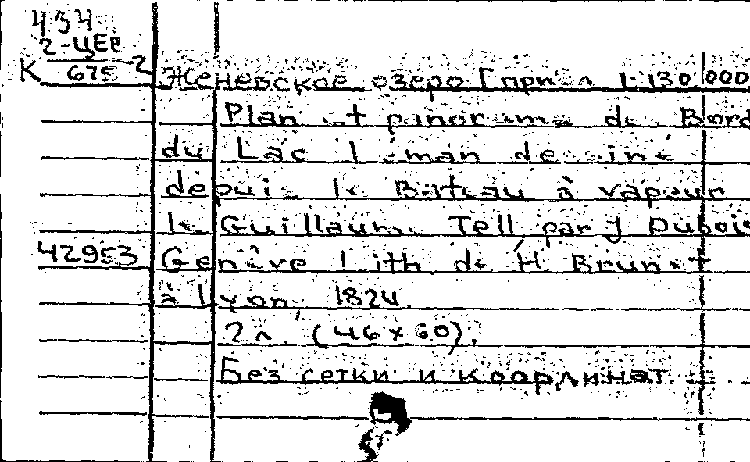 434
2-ЦЕР
К 675-2
Женевское озеро [прибл 1:130 000
Plan et panorama de Bord
du Lac Léman dessiné
depuis le Bateau à vapeur
le Guillaume Tell, par J Dubois
42953 Genève Lith de H Brunet
à Lyon, 1824.
2 л. (46 x 60).
Без сетки и координат